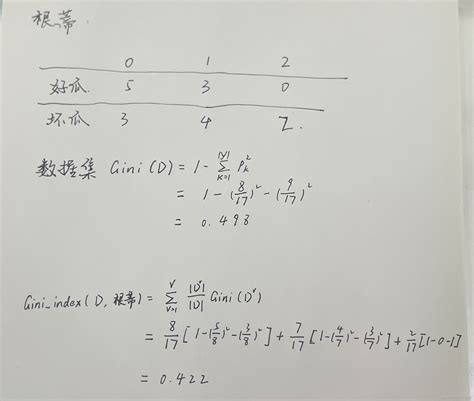 根蒂
0 1 2
好瓜 5 3 0
坏瓜 3 4 2
数据集 Gini(D) = 1 - ∑_{k=1}^{|y|} P_k^2
= 1 - (8/17)^2 - (9/17)^2
= 0.498
Gini_index(D, 根蒂) = ∑_{v=1}^{V} |D^v|/|D| Gini(D^v)
= 8/17 [1 - (5/8)^2 - (3/8)^2] + 7/17 [1 - (4/7)^2 - (3/7)^2] + 2/17 [1 - 0 - 1]
= 0.422